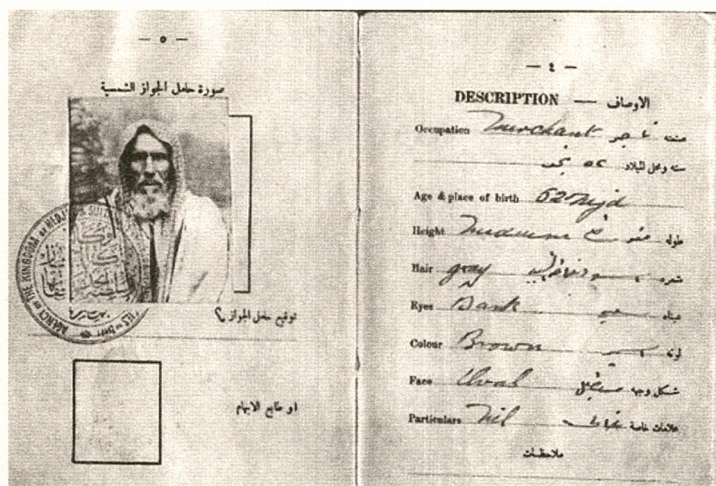 — ٥ —
صورة حامل الجواز الشمسية
AGENCY OF THE KINGDOM OF HEDJAZ
توقيع حامل الجواز
او طابع الابهام
— ٤ —
DESCRIPTION — الاوصاف
Occupation Merchant تاجر صنعته
سنه ومحل الميلاد ٥٢ نجد
Age & place of birth 52 Nejd
Height medium طوله
Hair gray شعره
Eyes Dark عيناه
Colour Brown لونه
Face Oval مستطيل شكل وجهه
Particulars Nil علامات خاصة
ملاحظات